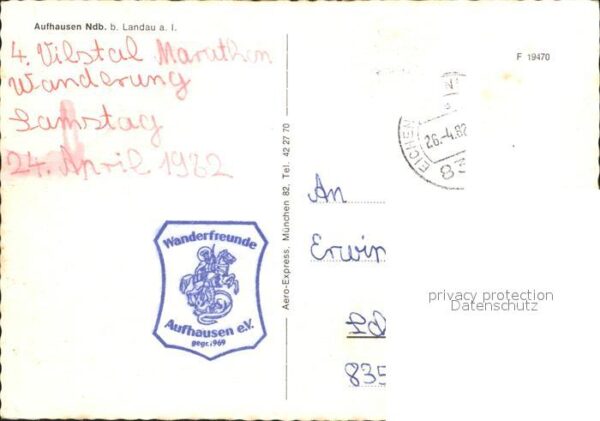 Aufhausen Ndb. b. Landau a. I.
F 19470
4. Vilstal Marathon
Wanderung
Samstag
24. April 1982
EICHEN
26.-4.82
83
Wanderfreunde
Aufhausen e.V.
gegr. 1969
Aero-Express, München 82, Tel. 42 27 70
An
Erwin
835
privacy protection
Datenschutz